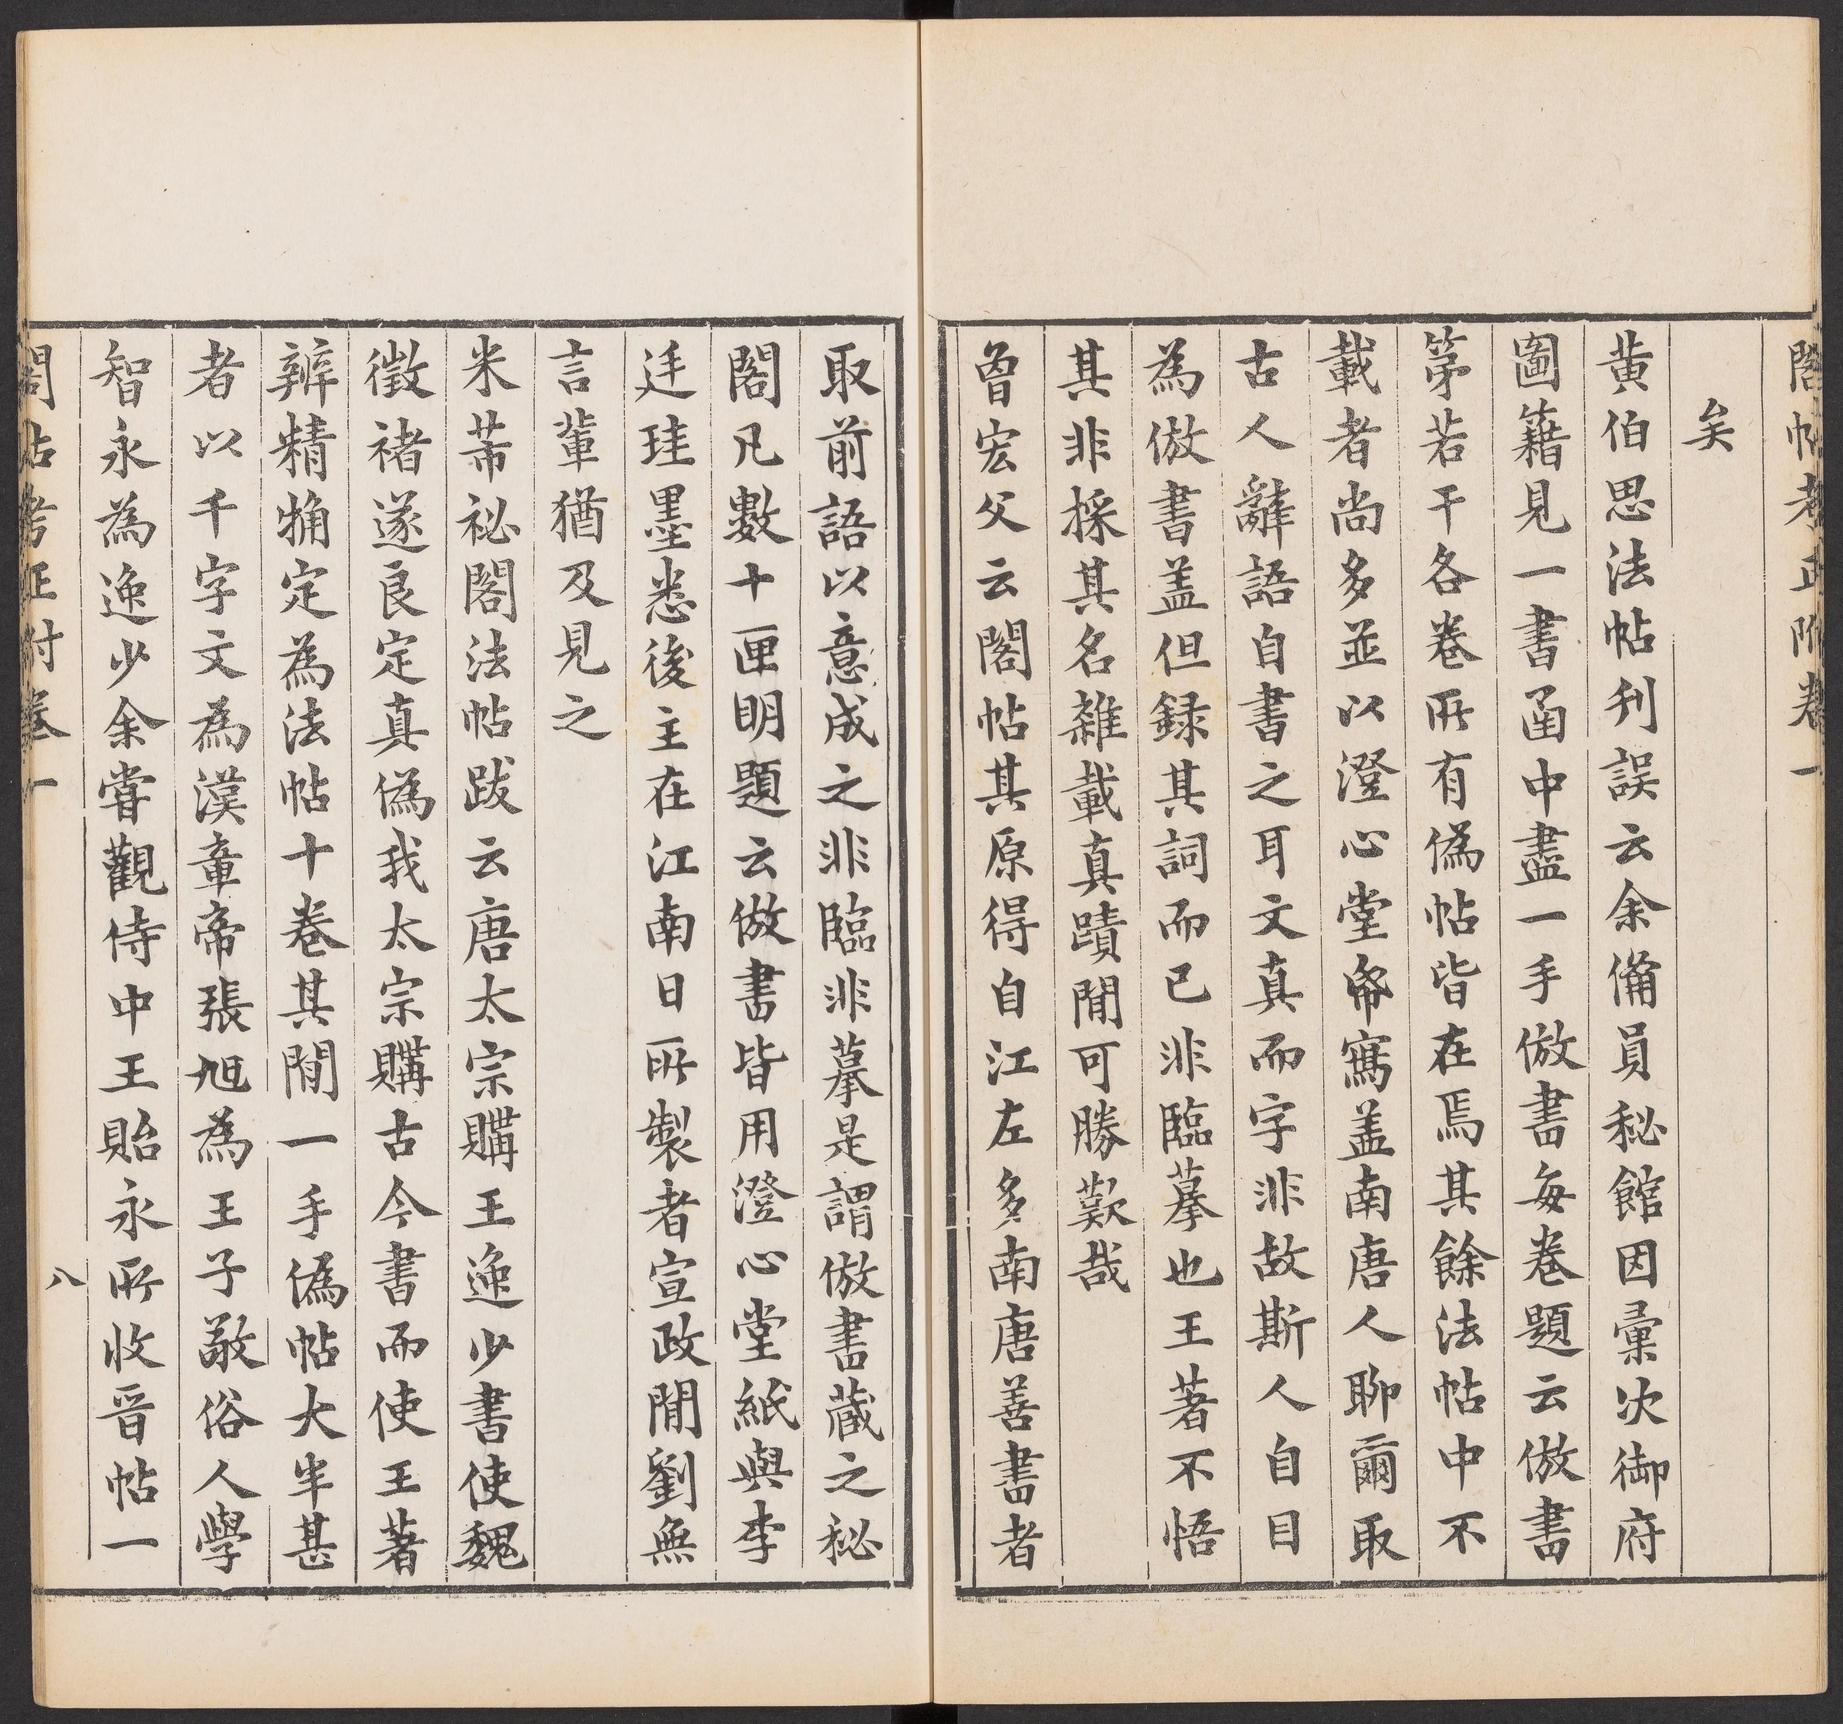 閣帖考正附卷一
矣
黄伯思法帖刋誤云余備員秘館因彚次御府
圖籍見一書函中盡一手倣書每卷題云倣書
第若干各卷所有偽帖皆在焉其餘法帖中不
載者尚多並以澄心堂帋寫盖南唐人聊爾取
古人辭語自書之耳文真而字非故斯人自目
為倣書盖但録其詞而已非臨摹也王著不悟
其非採其名雜載真蹟閒可勝歎哉
曾宏父云閣帖其原得自江左多南唐善書者
取前語以意成之非臨非摹是謂倣書蔵之秘
閣凡數十匣明題云倣書皆用澄心堂紙與李
廷珪墨悉後主在江南日所製者宣政閒劉無
言輩猶及見之
米芾祕閣法帖跋云唐太宗購王逸少書使魏
徵褚遂良定真偽我太宗購古今書而使王著
辨精觕定為法帖十卷其閒一手偽帖大半甚
者以千字文為漢章帝張旭為王子敬俗人學
智永為逸少余嘗觀侍中王貽永所收晋帖一
閣帖考正附卷一
八